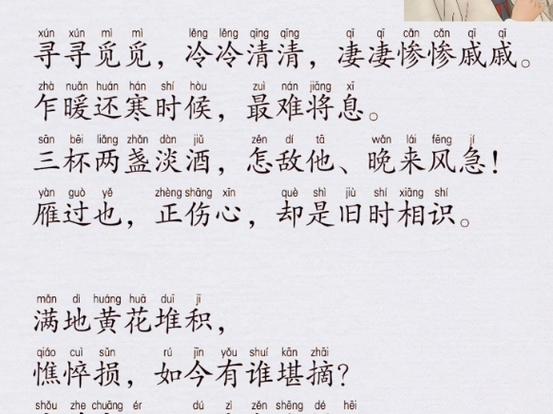 xún xún mì mì lěng lěng qīng qīng qī qī cǎn cǎn qī qī
寻寻觅觅，冷冷清清，凄凄惨惨戚戚。
zhà nuǎn huán hán shí hòu zuì nán jiāng xī
乍暖还寒时候，最难将息。
sān bēi liǎng zhǎn dàn jiǔ zěn dí tā wǎn lái fēng jí
三杯两盏淡酒，怎敌他、晚来风急！
yàn guò yě zhèng shāng xīn què shì jiù shí xiāng shí
雁过也，正伤心，却是旧时相识。
mǎn dì huáng huā duī jī
满地黄花堆积，
qiáo cuì sǔn rú jīn yǒu shuí kān zhāi
憔悴损，如今有谁堪摘？
shǒu zhe chuāng ér dú zì zěn shēng dé hēi